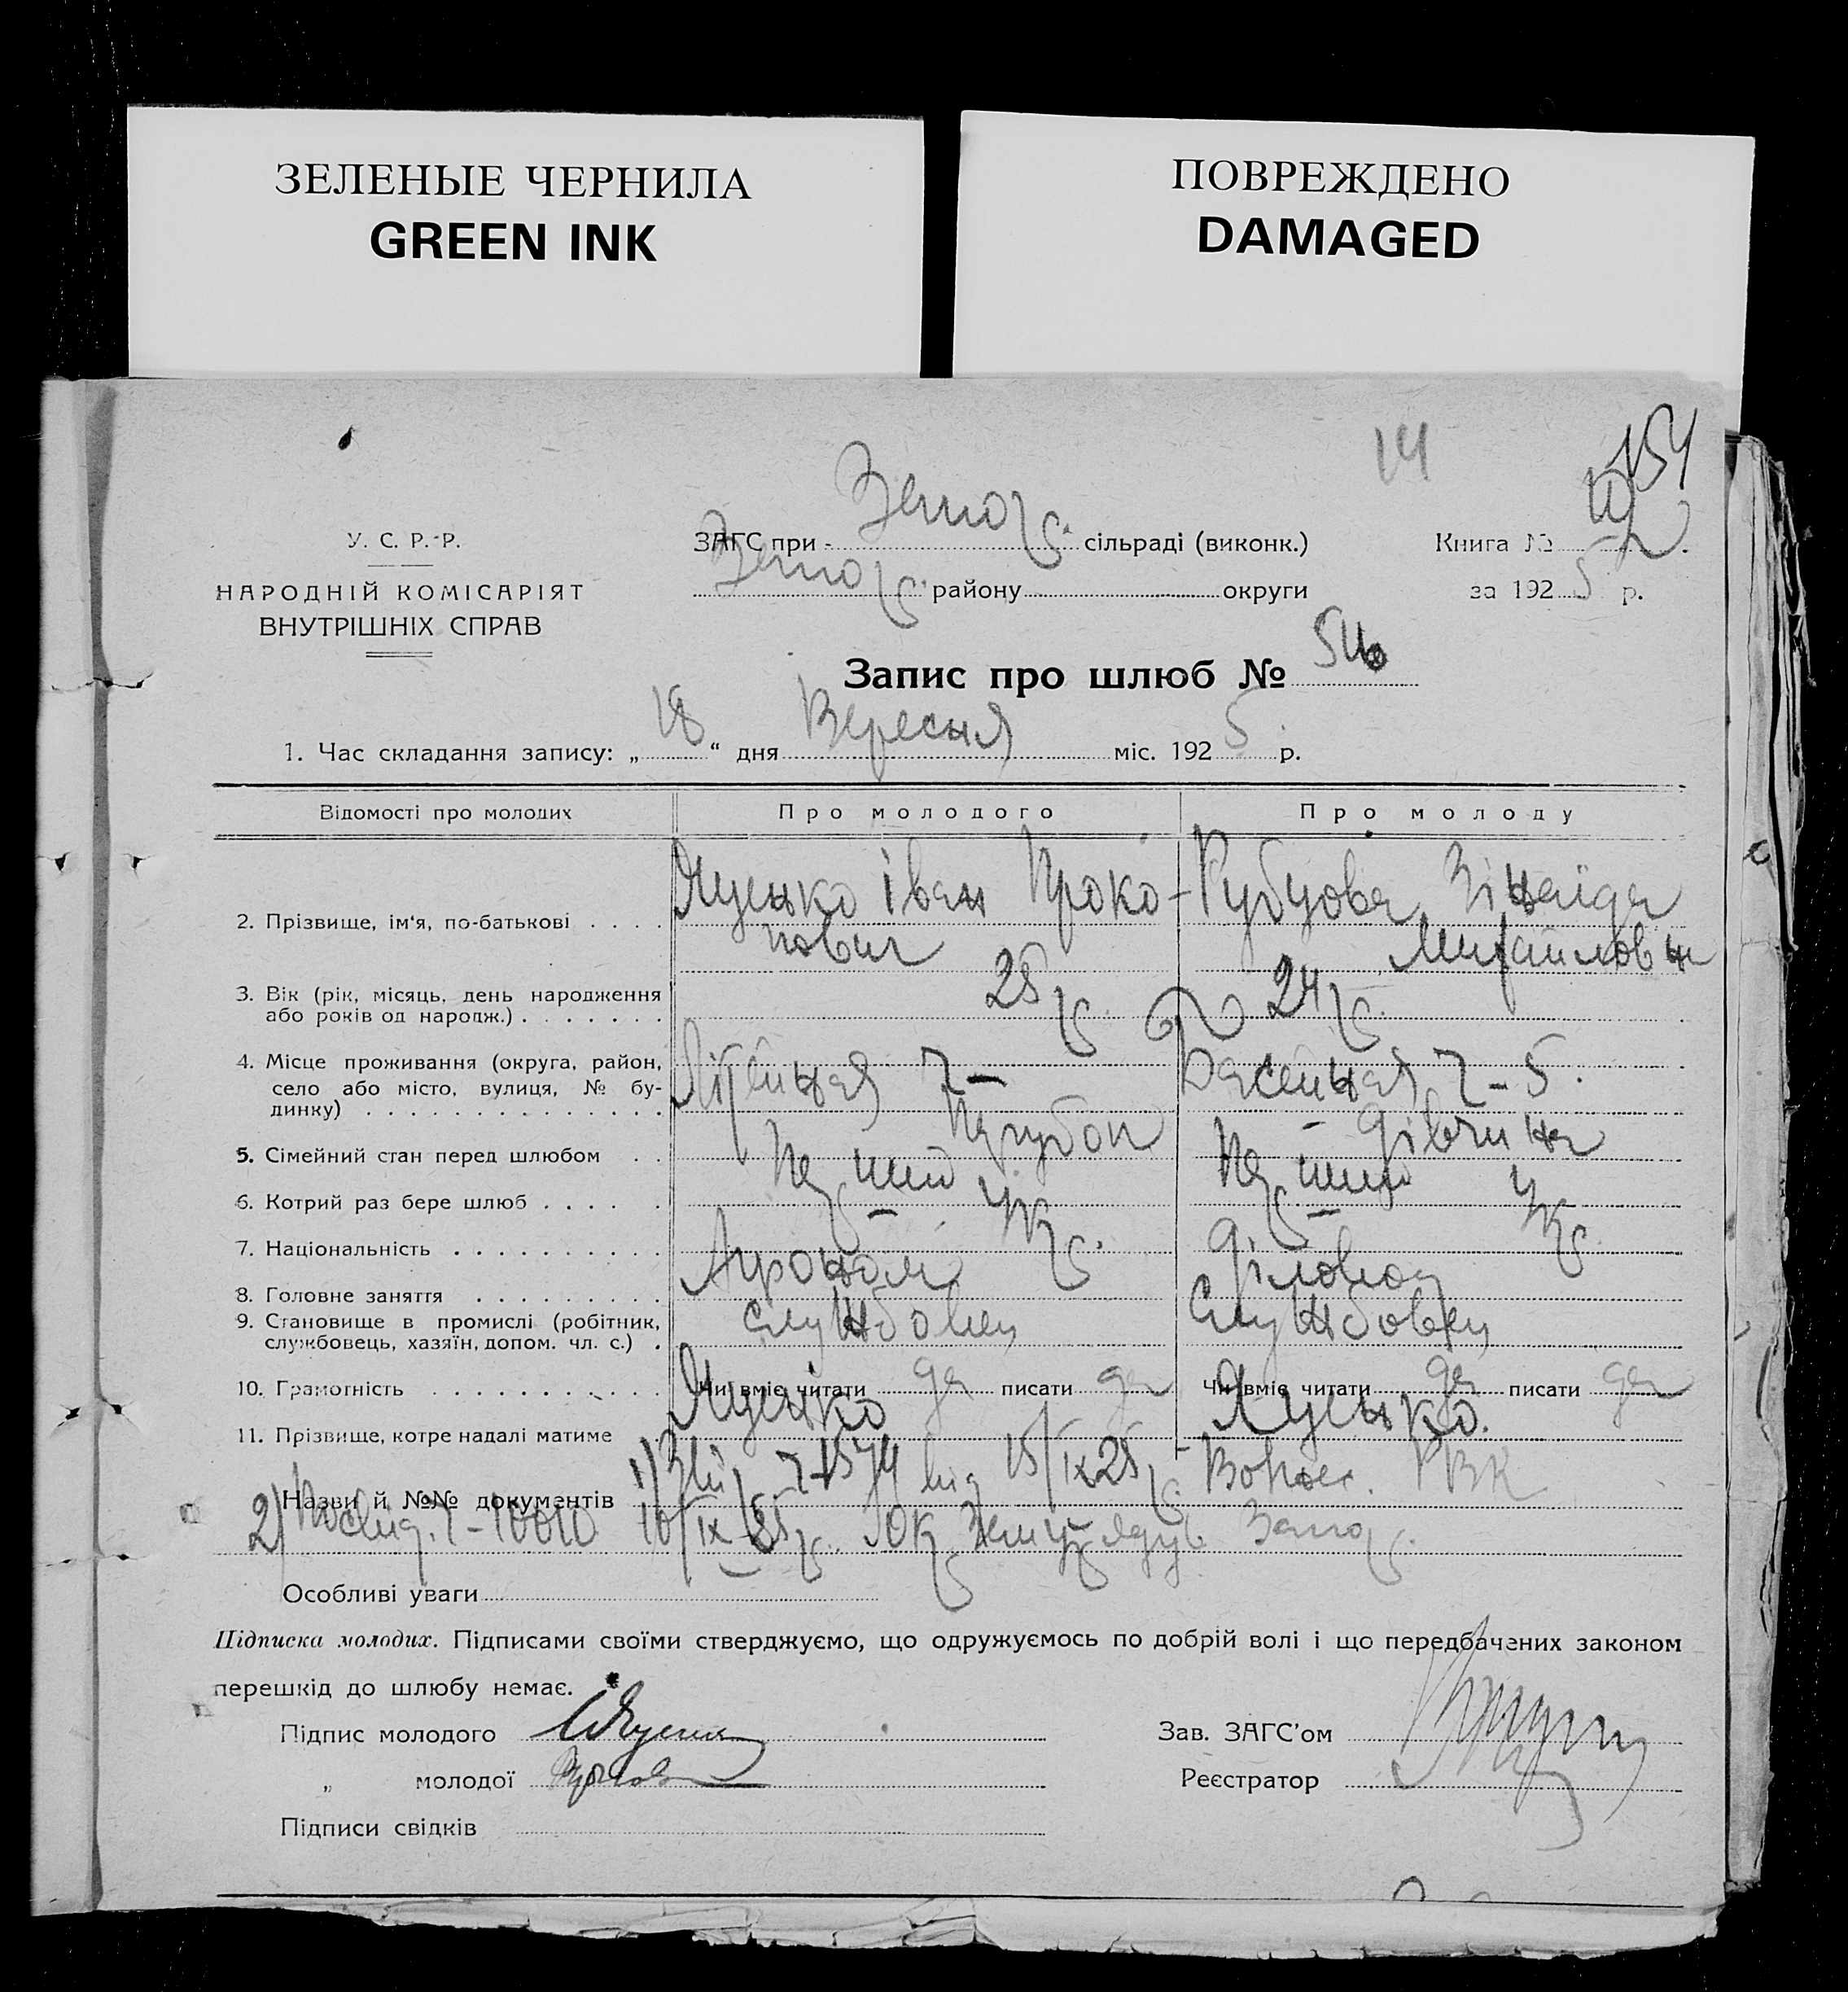 ЗЕЛЕНЫЕ ЧЕРНИЛА
GREEN INK
ПОВРЕЖДЕНО
DAMAGED
14
154
У. С. Р.-Р.
НАРОДНІЙ КОМІСАРІЯТ
ВНУТРІШНІХ СПРАВ
ЗАГС при Запор. сільраді (виконк.)
Запор. району округи
Книга №
за 1925 р.
Запис про шлюб №
1. Час складання запису: „18“ дня Вересня міс. 1925 р.
Відомості про молодих Про молодого Про молоду
2. Прізвище, ім'я, по-батькові Яценко Іван Проко- Рубцова Зінаїда
пович Михайловна
3. Вік (рік, місяць, день народження
або років од народж.) 25 р. 24 р.
4. Місце проживання (округа, район,
село або місто, вулиця, № бу-
динку) 7- Басейная 7-5.
5. Сімейний стан перед шлюбом Парубок Дівчина
6. Котрий раз бере шлюб Перший Перший
7. Національність Укр. Укр.
8. Головне заняття Агроном Діловод
9. Становище в промислі (робітник,
службовець, хазяїн, допом. чл. с.) Службовец Службовец
10. Грамотність Чи вміє читати да писати да Чи вміє читати да писати да
11. Прізвище, котре надалі матиме Яценко Яценко.
Назви й №№ документів 1) 7-1574 від 15/IX 25 р. РВК
2) Посвид. 7-10010 10/IX-25 р. Окр. Запор.
Особливі уваги
Підписка молодих. Підписами своїми стверджуємо, що одружуємось по добрій волі і що передбачених законом
перешкід до шлюбу немає.
Підпис молодого ІЯценко
„ молодої Рубцова
Підписи свідків
Зав. ЗАГС'ом
Реєстратор